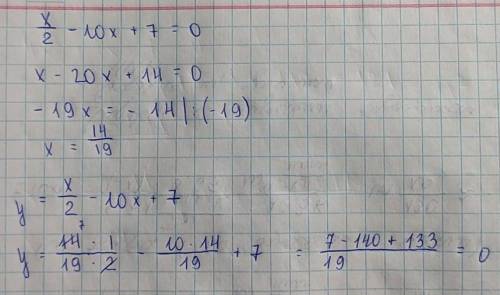 x/2 - 10x + 7 = 0
x - 20x + 14 = 0
- 19x = - 14 | : (-19)
x = 14/19
y = x/2 - 10x + 7
y = (14̶ ⁷ · 1)/(19 · 2̶) - (10 · 14)/19 + 7 = (7 - 140 + 133)/19 = 0